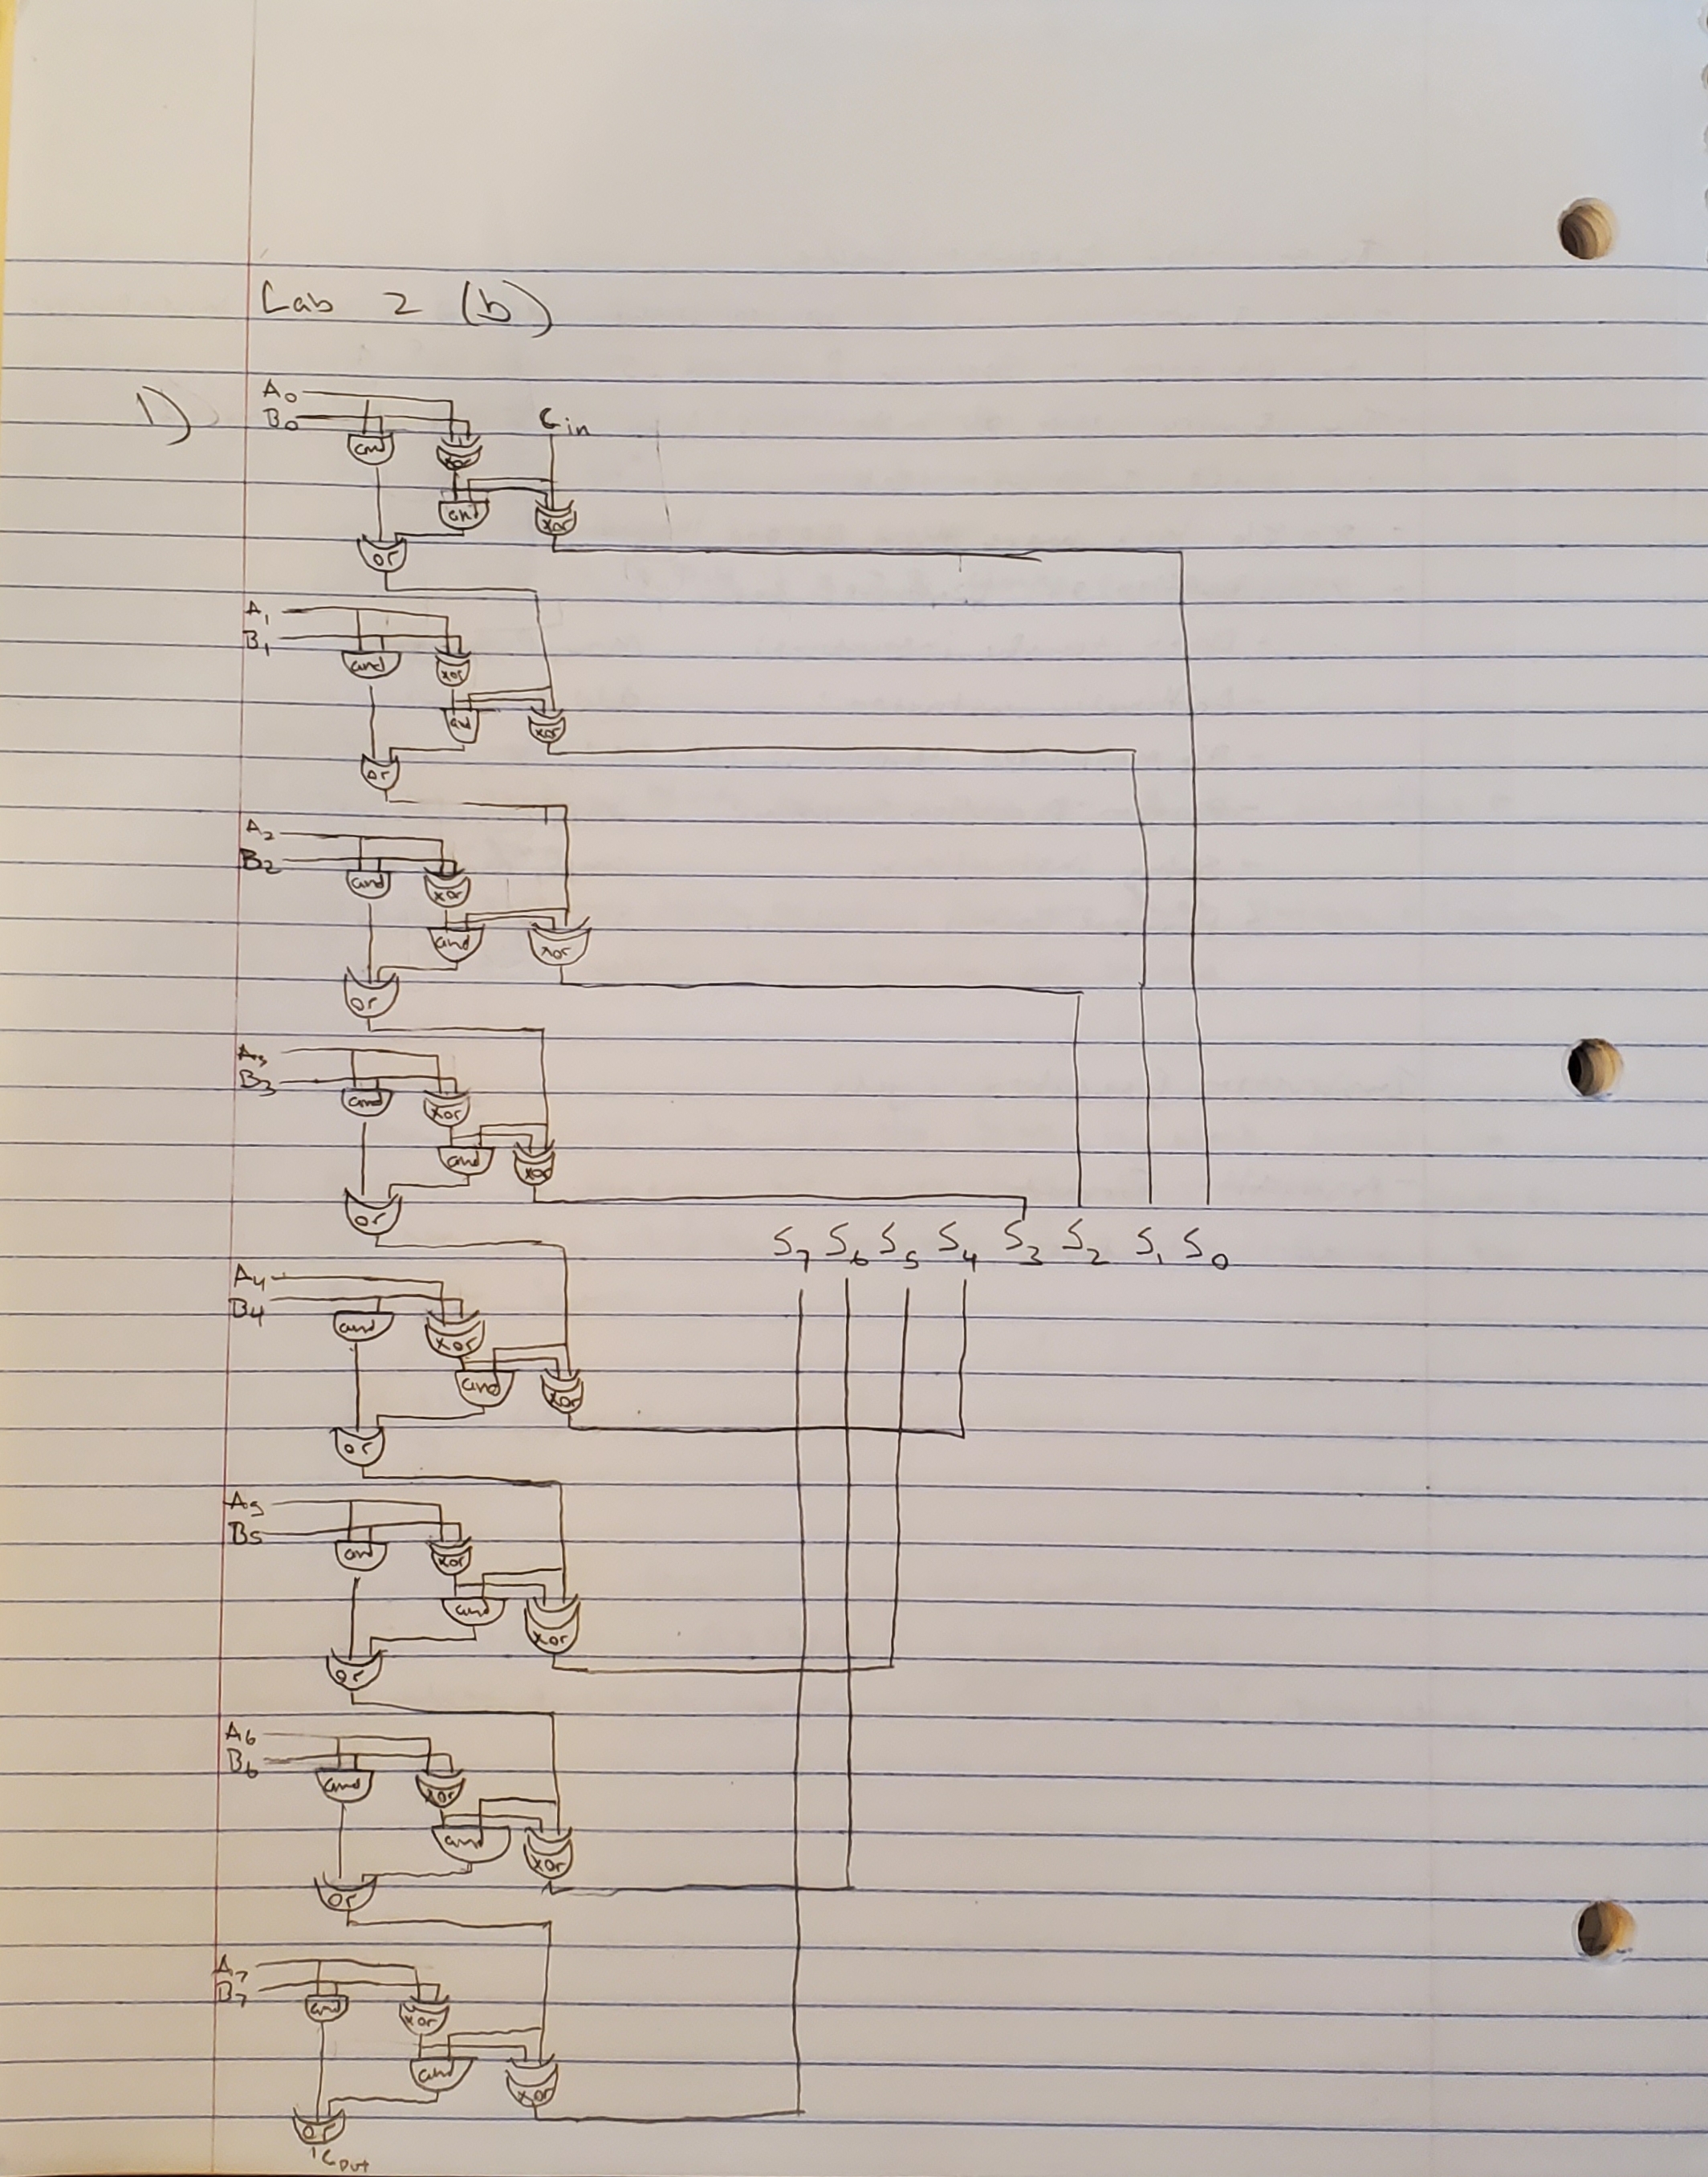 Lab 2 (b)
1)
A0
B0
Cin
and
xor
and
xor
or
A1
B1
and
xor
and
xor
or
A2
B2
and
xor
and
xor
or
A3
B3
and
xor
and
xor
or
S7 S6 S5 S4 S3 S2 S1 S0
A4
B4
and
xor
and
xor
or
A5
B5
and
xor
and
xor
or
A6
B6
and
xor
and
xor
or
A7
B7
and
xor
and
xor
or
Cout